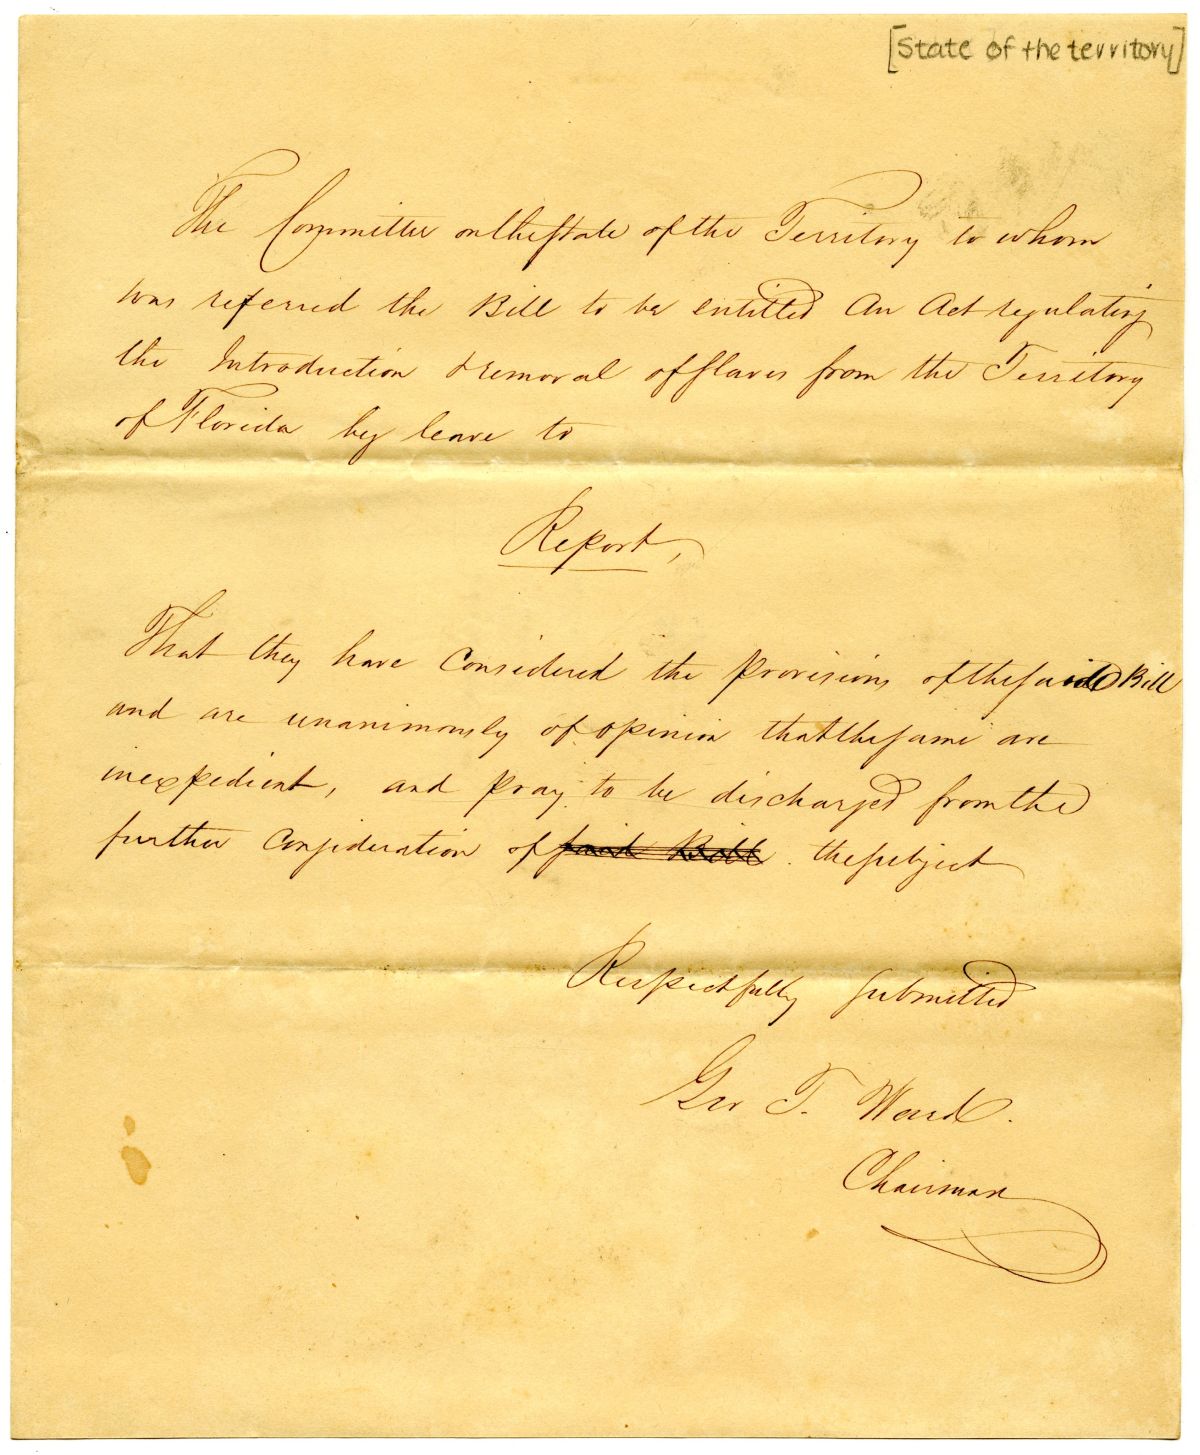 [State of the territory]
The Committee on the State of the Territory to whom
was referred the Bill to be entitled An Act regulating
the Introduction & removal of Slaves from the Territory
of Florida beg leave to
Report,
That they have considered the provisions of the said Bill
and are unanimously of opinion that the same are
inexpedient, and pray to be discharged from the
further Consideration of said Bill. the subject
Respectfully Submitted
Geo T. Ward.
Chairman